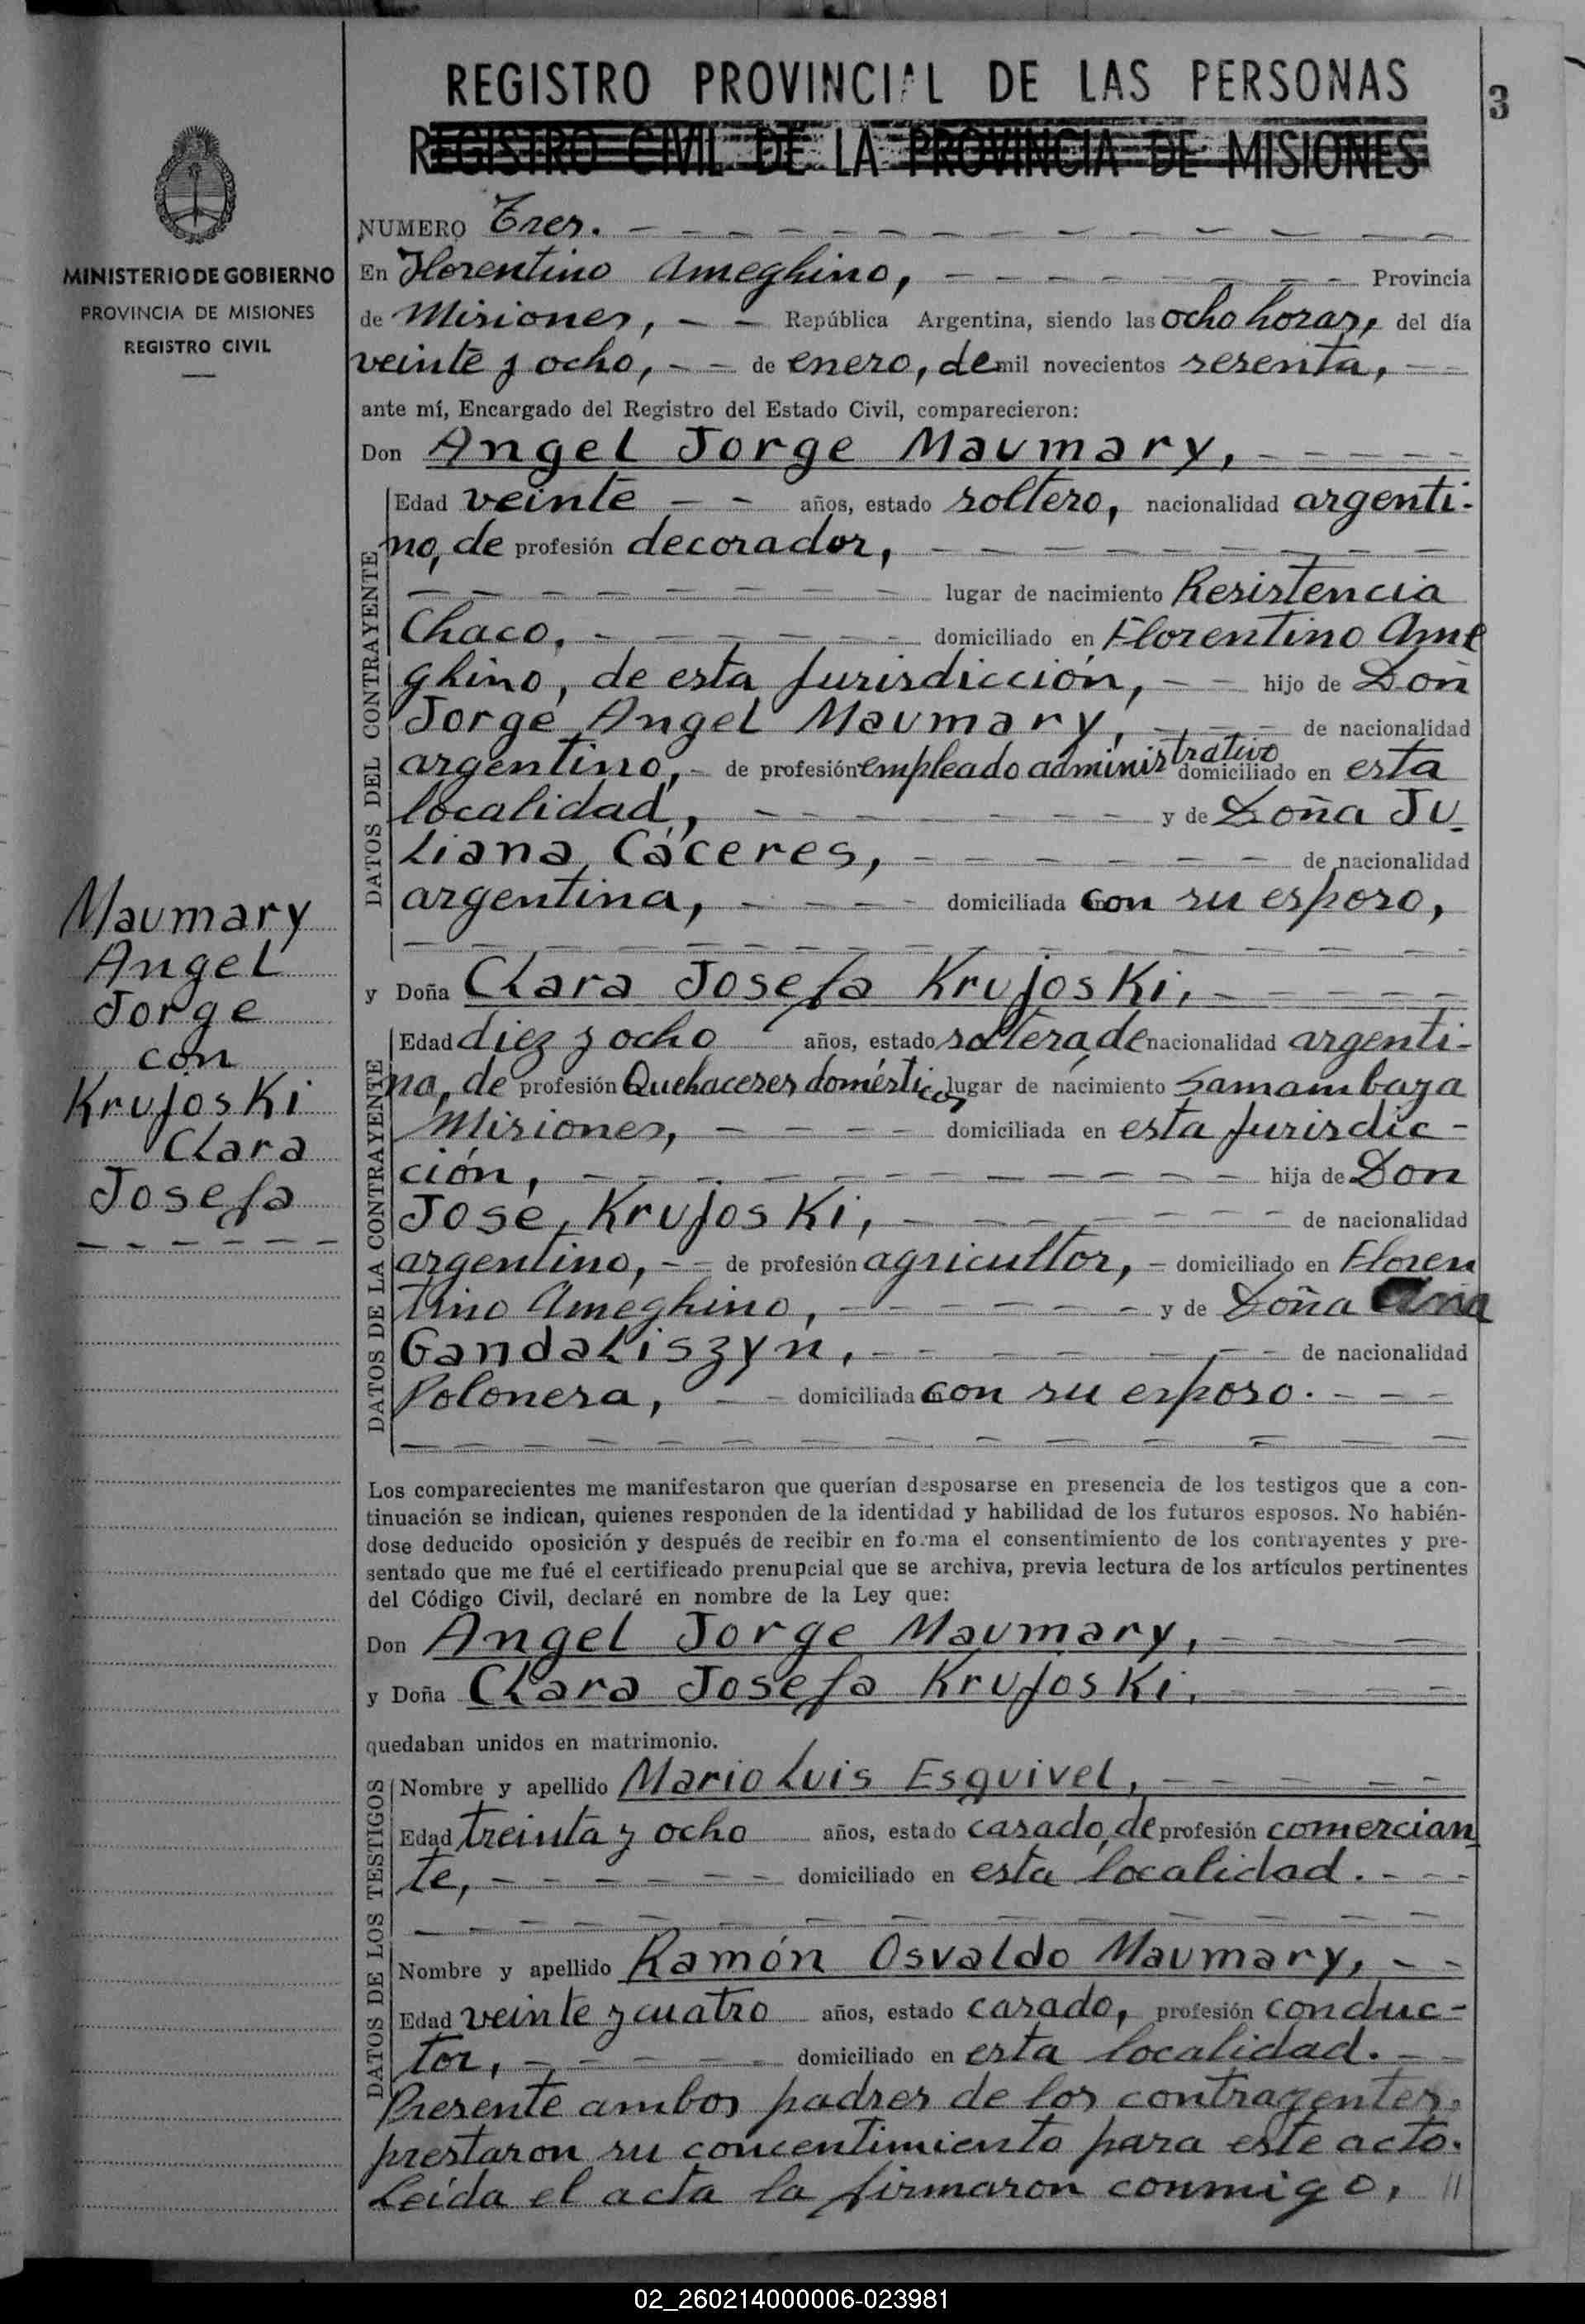 REGISTRO PROVINCIAL DE LAS PERSONAS
3
REGISTRO CIVIL DE LA PROVINCIA DE MISIONES
MINISTERIO DE GOBIERNO
PROVINCIA DE MISIONES
REGISTRO CIVIL
Maumary
Angel
Jorge
con
Krujoski
Clara
Josefa
NUMERO Tres.
En Florentino Ameghino, Provincia
de Misiones, República Argentina, siendo las ocho horas, del día
veinte y ocho, de enero, de mil novecientos sesenta,
ante mí, Encargado del Registro del Estado Civil, comparecieron:
Don Angel Jorge Maumary,
DATOS DEL CONTRAYENTE
Edad veinte años, estado soltero, nacionalidad argenti-
no, de profesión decorador,
lugar de nacimiento Resistencia
Chaco, domiciliado en Florentino Ame
ghino, de esta jurisdicción, hijo de Don
Jorge Angel Maumary, de nacionalidad
argentino, de profesión empleado administrativo domiciliado en esta
localidad, y de Doña Ju-
liana Cáceres, de nacionalidad
argentina, domiciliada con su esposo,
y Doña Clara Josefa Krujoski,
DATOS DE LA CONTRAYENTE
Edad diez y ocho años, estado soltera, de nacionalidad argenti-
na, de profesión Quehaceres domésticos lugar de nacimiento Samambaya
Misiones, domiciliada en esta jurisdic-
ción, hija de Don
José Krujoski, de nacionalidad
argentino, de profesión agricultor, domiciliado en Floren
tino Ameghino, y de Doña Ana
Gandaliszyn, de nacionalidad
Polonesa, domiciliada con su esposo.
Los comparecientes me manifestaron que querían desposarse en presencia de los testigos que a con-
tinuación se indican, quienes responden de la identidad y habilidad de los futuros esposos. No habién-
dose deducido oposición y después de recibir en forma el consentimiento de los contrayentes y pre-
sentado que me fué el certificado prenupcial que se archiva, previa lectura de los artículos pertinentes
del Código Civil, declaré en nombre de la Ley que:
Don Angel Jorge Maumary,
y Doña Clara Josefa Krujoski,
quedaban unidos en matrimonio.
DATOS DE LOS TESTIGOS
Nombre y apellido Mario Luis Esquivel,
Edad treinta y ocho años, estado casado, de profesión comercian
te, domiciliado en esta localidad.
Nombre y apellido Ramón Osvaldo Maumary,
Edad veinte y cuatro años, estado casado, profesión conduc-
tor, domiciliado en esta localidad.
Presente ambos padres de los contrayentes,
prestaron su concentimiento para este acto.
Leída el acta la firmaron conmigo, //
02_260214000006-023981